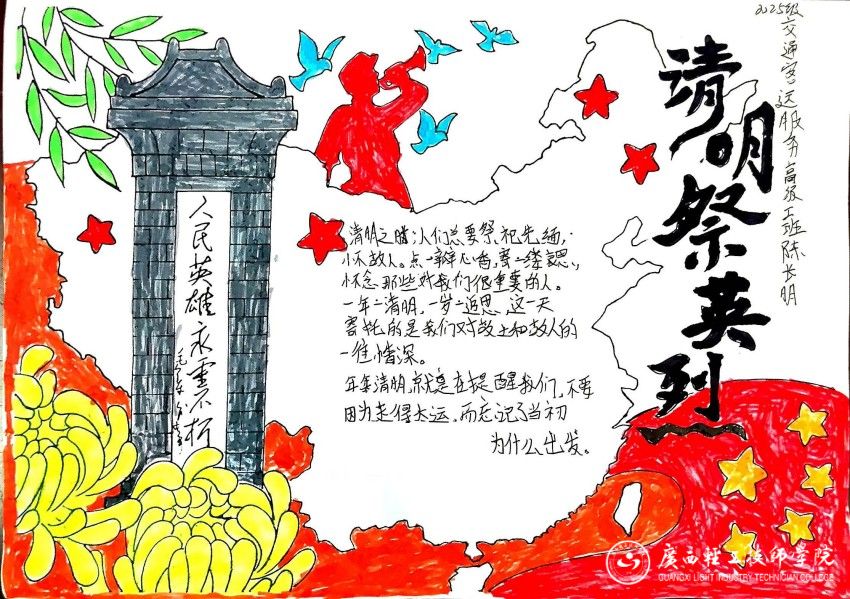 2025级交通客运服务高级工班陈长明
清明祭英烈
人民英雄永垂不朽
清明之时,人们总要祭祀先缅,
怀故人。点一瓣心香,寄一缕思,
怀念那些对我们很重要的人。
一年一清明,一岁一追思,这一天
寄托的是我们对故土和故人的
一往情深。
年年清明,就是在提醒我们,不要
因为走得太远,而忘记了当初
为什么出发。
广西轻工技师学院
GUANGXI LIGHT INDUSTRY TECHNICIAN COLLEGE